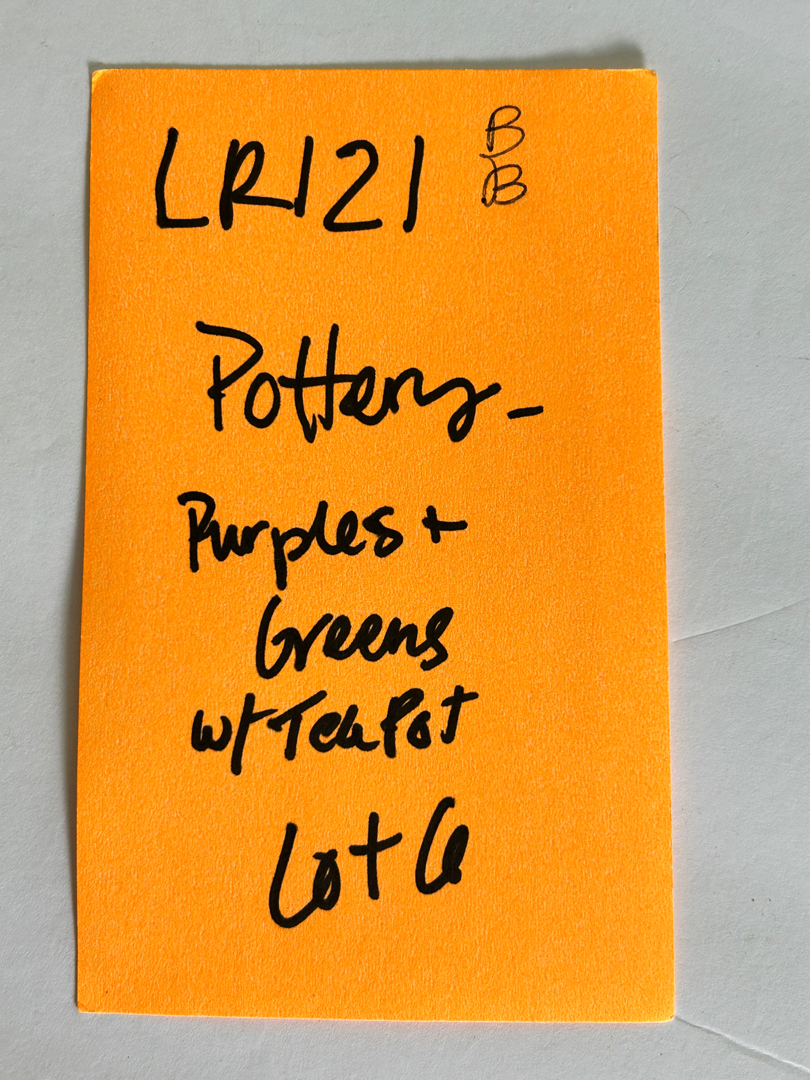 LR121 B
B
Pottery -
Purples +
Greens
w/ TeaPot
Lot 6